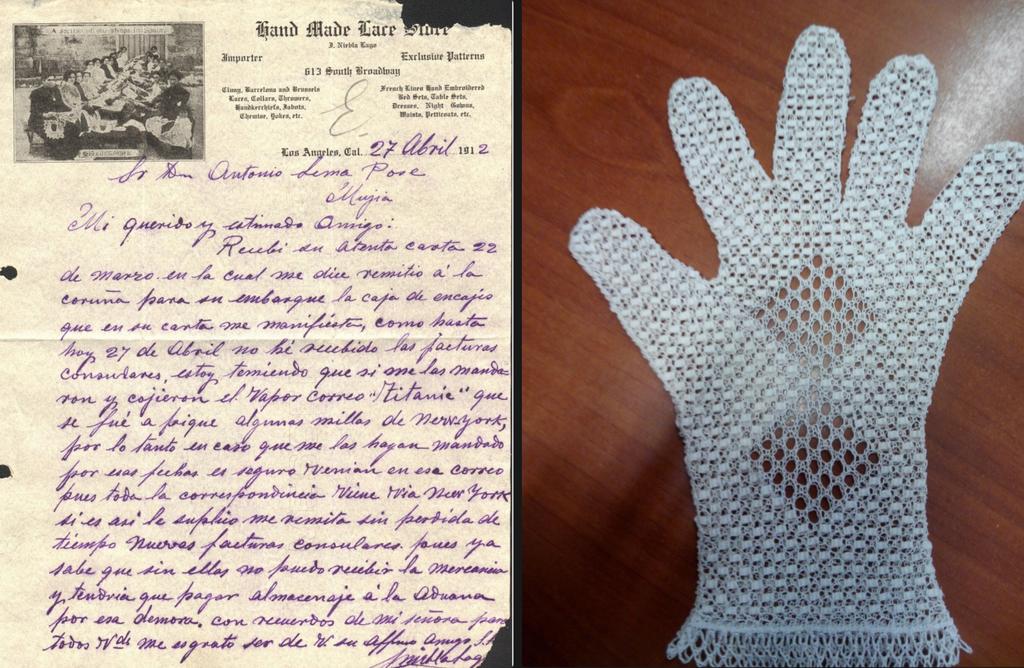 Hand Made Lace Store
J. Niebla Lago
Importer
Exclusive Patterns
613 South Broadway
Cluny, Barcelona and Brussels
Laces, Collars, Throwers,
Handkerchiefs, Jabots,
Chemise, Yokes, etc.
French Linen Hand Embroidered
Bed Sets, Table Sets,
Dresses, Night Gowns,
Waists, Petticoats, etc.
Los Angeles, Cal. 27 Abril 1912
Sr Dn Antonio Lema Pose
Mujia
Mi querido y estimado Amigo:
Recibi su atenta carta 22
de marzo en la cual me dice remitio á la
coruña para su embarque la caja de encajes
que en su carta me manifiesta, como hasta
hoy 27 de Abril no hé recibido las facturas
consulares, estoy temiendo que si me las manda-
ron y cojieron el Vapor Correo "Titanic" que
se fué a pique algunas millas de New York,
por lo tanto en caso que me las hayan mandado
por esas fechas es seguro venian en ese correo
pues toda la correspondincia viene via New York
si es asi le suplico me remita sin perdida de
tiempo nuevas facturas consulares. pues ya
sabe que sin ellas no puedo recibir la mercancia
y tendria que pagar almacenaje á la Aduana
por esa demora. con recuerdos de mi señora para
todos Vds me es grato ser de V. su Affmo Amigo S.S.